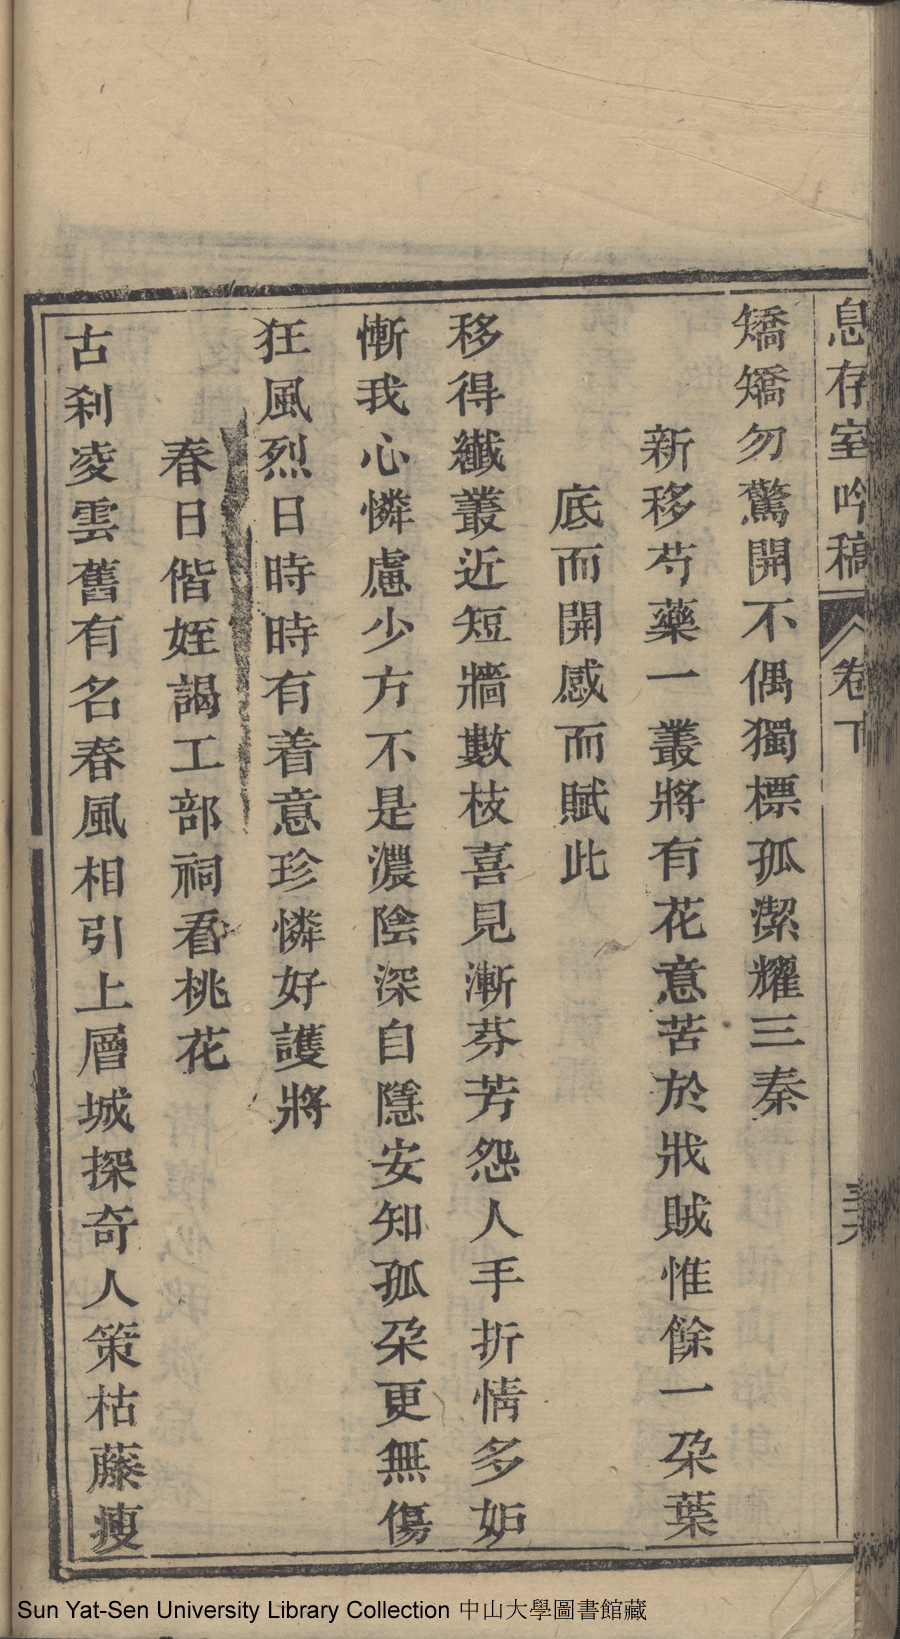 息存室吟稿 卷下
矯矯勿驚開不偶獨標孤潔耀三秦
新移芍藥一叢將有花意苦於戕賊惟餘一朶葉
底而開感而賦此
移得纖叢近短牆數枝喜見漸芬芳怨人手折情多妒
慚我心憐慮少方不是濃陰深自隱安知孤朶更無傷
狂風烈日時時有着意珍憐好護將
春日偕姪謁工部祠看桃花
古刹凌雲舊有名春風相引上層城探奇人策枯藤瘦
Sun Yat-Sen University Library Collection 中山大學圖書館藏